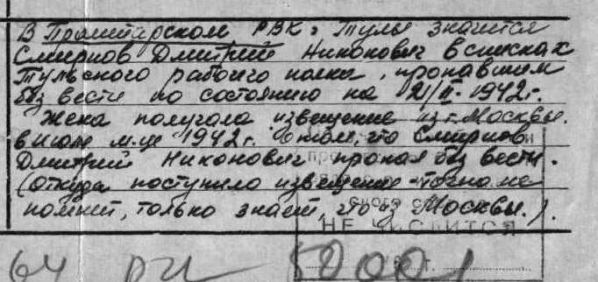 В Пролетарском РВК г. Тулы значится
Смирнов Дмитрий Никонович в списках
Тульского рабочего полка, пропавшим
без вести по состоянию на 21/II-1942г.
Жена получала извещение из г. Москвы.
в июле м-це 1942г. о том, что Смирнов
Дмитрий Никонович пропал без вести.
(Откуда поступило извещение точно не
помнит, только знает, что из Москвы.).
НЕ ЧИСЛИТСЯ
64